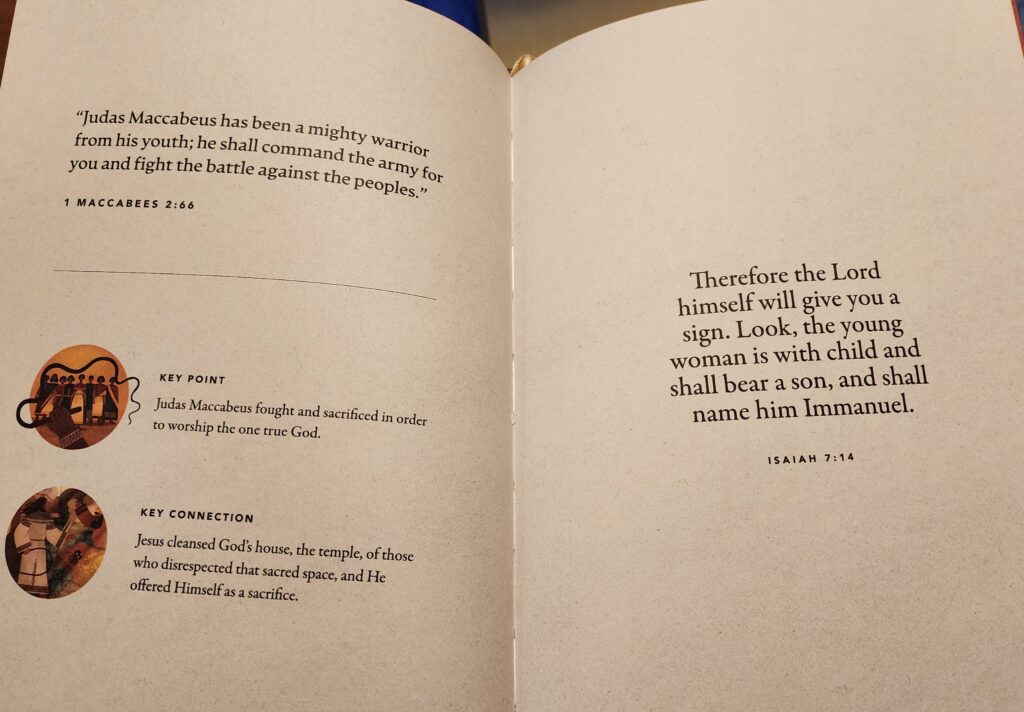 “Judas Maccabeus has been a mighty warrior
from his youth; he shall command the army for
you and fight the battle against the peoples.”
1 MACCABEES 2:66
KEY POINT
Judas Maccabeus fought and sacrificed in order
to worship the one true God.
KEY CONNECTION
Jesus cleansed God’s house, the temple, of those
who disrespected that sacred space, and He
offered Himself as a sacrifice.
Therefore the Lord
himself will give you a
sign. Look, the young
woman is with child and
shall bear a son, and shall
name him Immanuel.
ISAIAH 7:14